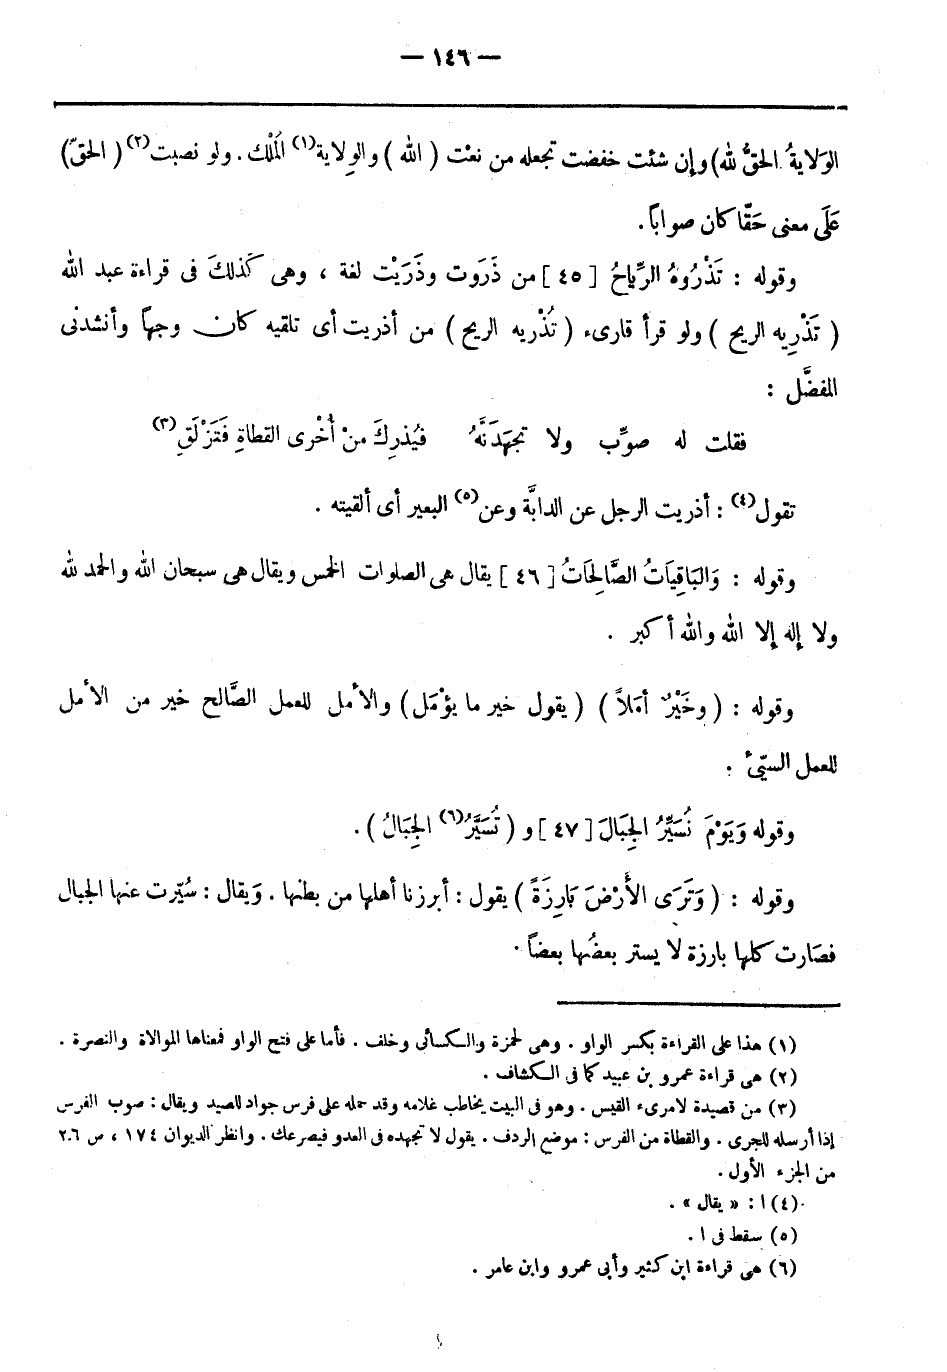 — ١٤٦ —
الوَلايةُ الحقُّ لله) وإن شئت خفضت تجعله من نعْت ( الله ) والوِلاية(١) المُلْك . ولو نصبت(٢) ( الحقّ )
عَلَى معنى حَقّا كان صواباً .
وقوله : تَذْرُوهُ الرِّياحُ [ ٤٥ ] من ذَرَوت وذَرَيْت لغة ، وهى كَذلكَ فى قراءة عبد الله
( تَذْرِيه الريح ) ولو قرأ قارىء ( تُذْريه الريح ) من أذريت أى تلقيه كان وجهاً وأنشدنى
المفضَّل :
فقلت له صوِّب ولا تجهَدَنَّهُ فيُذرِكَ منْ أُخْرى القطاةِ فَتَزْلَقِ(٣)
تقول(٤) : أذريت الرجل عن الدابَّة وعن(٥) البعير أى ألقيته .
وقوله : وَالبَاقِيَاتُ الصَّالِحَاتُ [ ٤٦ ] يقال هى الصلوات الخمس ويقال هى سبحان الله والحمد لله
ولا إله إلا الله والله أكبر .
وقوله : ( وخَيْرٌ أمَلاً ) ( يقول خير ما يؤمَل ) والأمل للعمل الصَّالح خير من الأمل
للعمل السيّئ .
وقوله وَيَوْمَ نُسَيِّرُ الجِبَالَ [ ٤٧ ] و ( تُسَيَّرُ(٦) الجِبَالُ ) .
وقوله : ( وَتَرَى الأَرْضَ بَارِزَةً ) يقول : أبرزنا أهلها من بطنها . وَيقال : سُيّرت عنها الجبال
فصَارت كلها بارزة لا يستر بعضُها بعضاً .
(١) هذا على القراءة بكسر الواو . وهى لحمزة والكسائى وخلف . فأما على فتح الواو فمعناها الموالاة والنصرة .
(٢) هى قراءة عمرو بن عبيد كما فى الكشاف .
(٣) من قصيدة لامرىء القيس . وهو فى البيت يخاطب غلامه وقد حمله على فرس جواد للصيد ويقال : صوب الفرس
إذا أرسله للجرى . والقطاة من الفرس : موضع الردف . يقول لا تجهده فى العدو فيصرعك . وانظر الديوان ١٧٤ ، ص ٢٠٦
من الجزء الأول .
(٤) ا : « يقال » .
(٥) سقط فى ا .
(٦) هى قراءة ابن كثير وأبى عمرو وابن عامر .